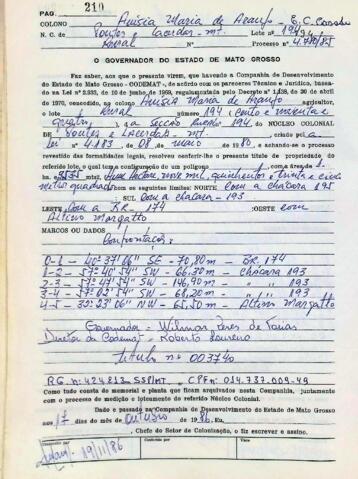 PAG. 210
COLONO Ausia Maria de Araujo - E.C. Casada
N. C. de Pontes e Lacerda - mt. Lote n.º 194
Rural Processo n.º 4.780/85
O GOVERNADOR DO ESTADO DE MATO GROSSO
Faz saber, aos que a presente virem, que havendo a Companhia de Desenvolvimento
do Estado de Mato Grosso - CODEMAT-, de acordo com os pareceres Técnico e Jurídico, basea-
do na Lei n.º 2.933, de 10 de junho de 1969, regulamentada pelo Decreto n.º 1.138, de 30 de abril
de 1970, concedido, ao colono Ausia Maria de Araujo agricultor,
o lote Rural número 194 (Cento e noventa e
quatro), na secção 194, do NÚCLEO COLONIAL
DE Pontes e Lacerda - mt. criado pela
Lei n.º 4.183, de 08 de maio de 1980, e achando-se o processo
revestido das formalidades legais, resolveu conferir-lhe o presente título de propriedade do
referido lote, o qual tem a configuração de um polígono com a área de 1
ha. 9535 Hum hectare, nove mil, quinhentos e trinta e cinco
metro quadrados com os seguintes limites: NORTE Com a chacara 195
SUL com a chacara - 193
LESTE Com a BR. 174 :OESTE com
Altino Margatto
MARCOS OU DADOS
Confrontação:
0-1 - 40º 37' 06" SE - 70,80m - BR. 174
1-2 - 57º 40' 54" SW - 66,30m - Chácara 193
2-3 - 57º 47' 54" SW - 146,90m - " " 193
3-4 - 57º 02' 54" SW - 68,20m - " " 193
4-5 - 32º 23' 06" NW - 65,50m - Altino Margatto
Governador - Wilmar Peres de Farias
Diretor da Codemat - Roberto Loureiro
titulo nº 003740
RG. n: 424813 SSP/MT. CPF n: 014.737.009-49
Como tudo consta do memorial e planta que ficam arquivados nesta Companhia, juntamente
com o processo de medição e loteamento do referido Núcleo Colonial.
Dado e passado na Companhia de Desenvolvimento do Estado de Mato Grosso
aos 17 dias do mês de Outubro de 1986. Eu,
, Chefe do Setor de Colonização, o fiz escrever e assino.
Conferido por
19/11/86